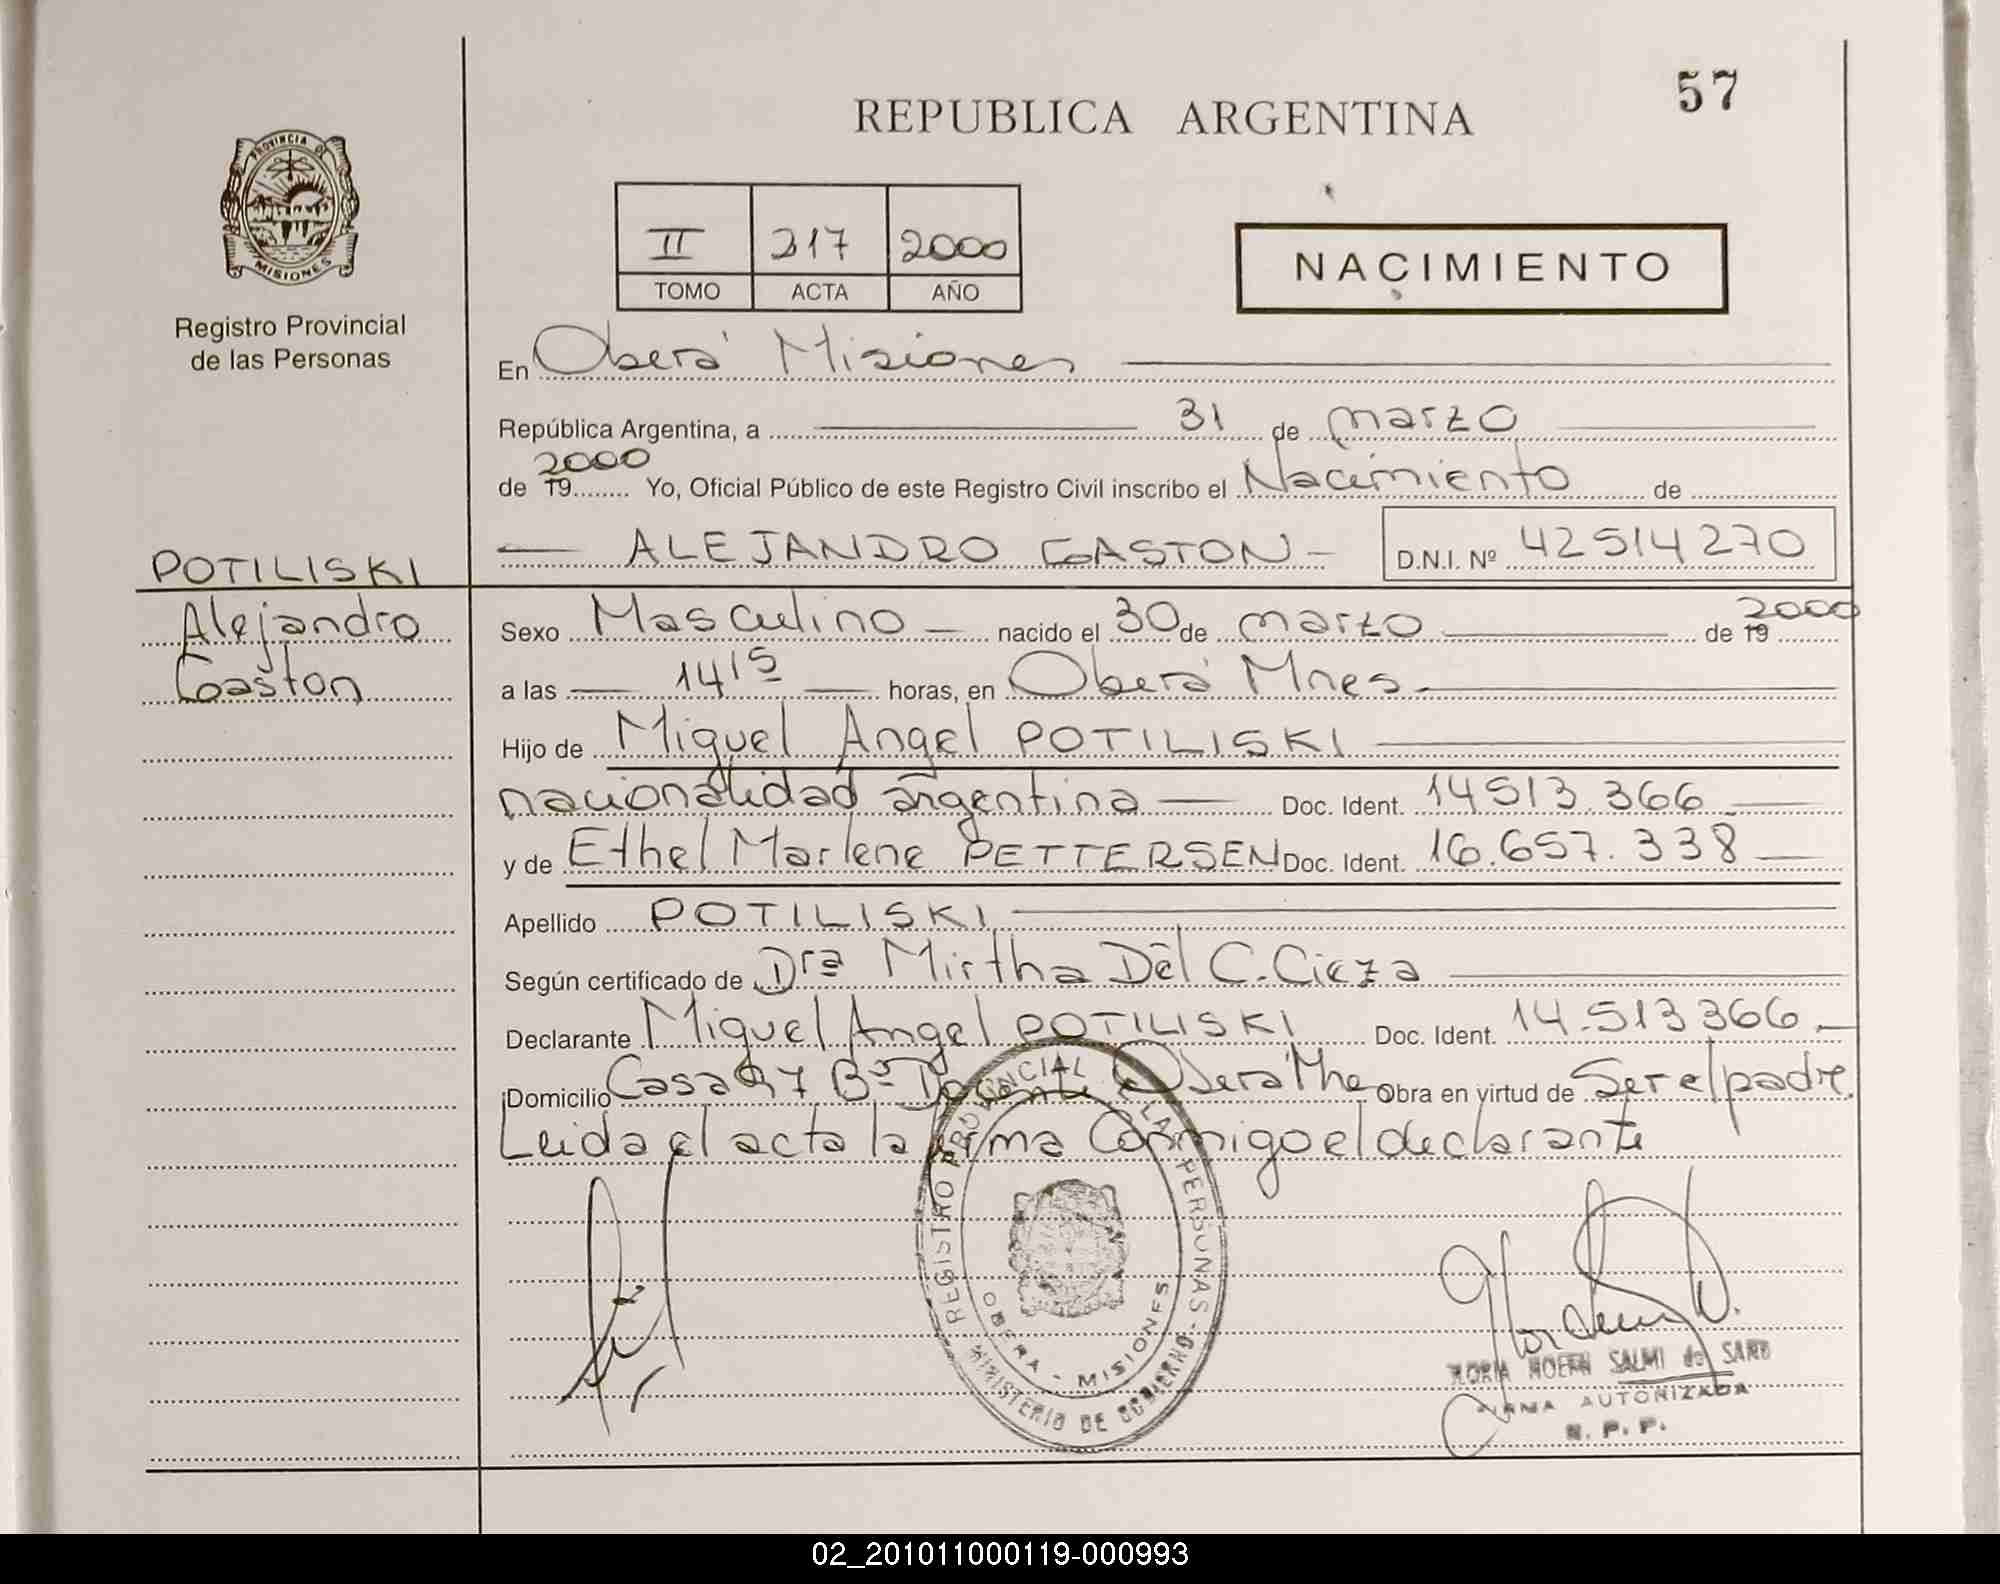 57
REPUBLICA ARGENTINA
PROVINCIA DE
MISIONES
Registro Provincial
de las Personas
II 217 2000
TOMO ACTA AÑO
NACIMIENTO
En Oberá Misiones
República Argentina, a 31 de marzo
2000
de 19 Yo, Oficial Público de este Registro Civil inscribo el Nacimiento de
ALEJANDRO GASTON D.N.I. Nº 42514270
POTILISKI
Alejandro
Gaston
Sexo Masculino nacido el 30 de marzo de 19 2000
a las 14 15 horas, en Oberá Mnes.
Hijo de Miguel Angel POTILISKI
nacionalidad argentina Doc. Ident. 14513.366
y de Ethel Marlene PETTERSEN Doc. Ident. 16.657.338
Apellido POTILISKI
Según certificado de Dra Mirtha Del C. Cieza
Declarante Miguel Angel POTILISKI Doc. Ident. 14.513366
Domicilio Casa 7 Bº Docente Oberá Mne Obra en virtud de Ser el padre.
Leida el acta la firma Conmigo el declarante
REGISTRO PROVINCIAL DE LAS PERSONAS -
MINISTERIO DE GOBIERNO
OBERA - MISIONES
SALMI de
FIRMA AUTORIZADA
R. P. P.
02_201011000119-000993